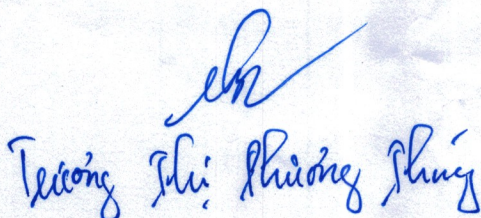 Trương Thị Phương Thúy